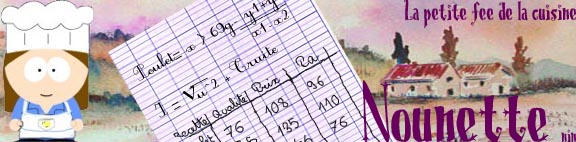 La petite fee de la cuisine
Poulet = x } 69g = y1+y
x1 - x2
I = √u 2 + Cruite
Recette Qualité Prix Ra
76 108 96
135 110
76
Nounette